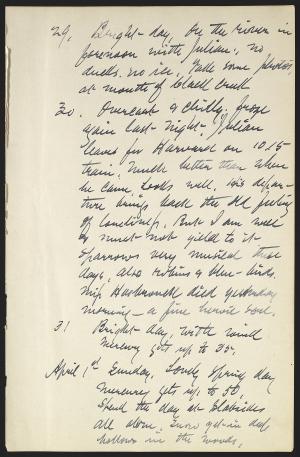 29, Bright day, On the river in
forenoon with Julian, no
ducks. no ice, Take some photos,
at mouth of black creek
30. Overcast & chilly. froze
again last night. Julian
leaves for Harvard on 10.15
train, Much better than when
he came, looks well, his depar-
ture brings back the old feeling
of loneliness. But I am well
& must not yield to it.
Sparrows very musical these
days, also robins & blue-birds.
Miss Hasbrouck died yesterday
morning — a fine heroic soul.
31 Bright day, with wind
Mercury gets up to 35.
April 1st Sunday, Lovely Spring day
Mercury gets up to 50,
Spend the day at Slabsides
all alone. Snow yet in deep
hollows in the woods.